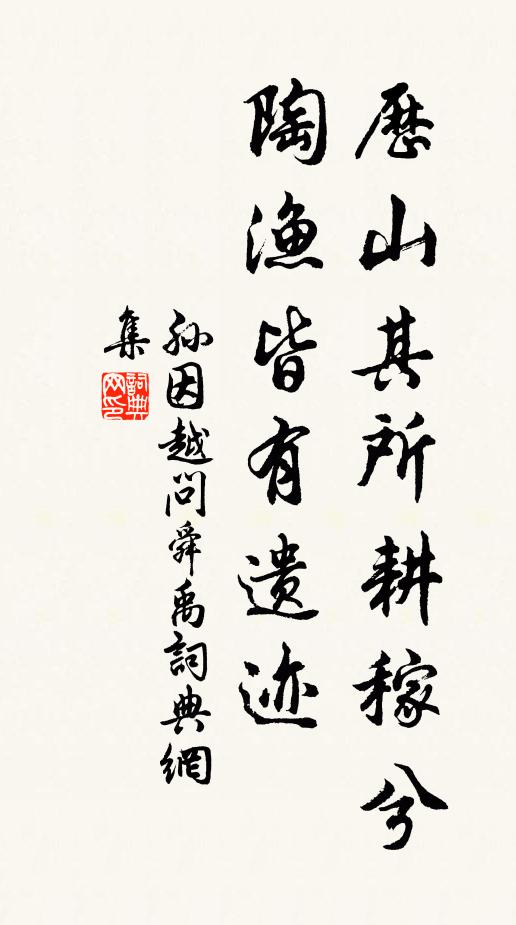 歷山其所耕稼兮
陶漁皆有遺迹
孫因越問舜禹詞典網
集
詞典网印